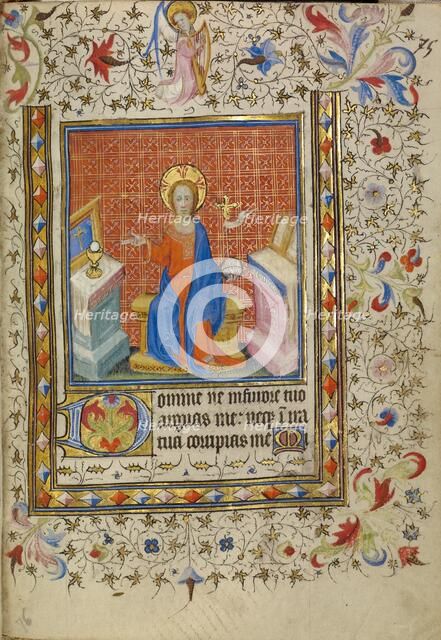 Heritage
Heritage
Heritage
Heritage
Heritage
Domine ne in furore tuo
arguas me neqz in ira
tua corripias me M
Heritage
Heritage